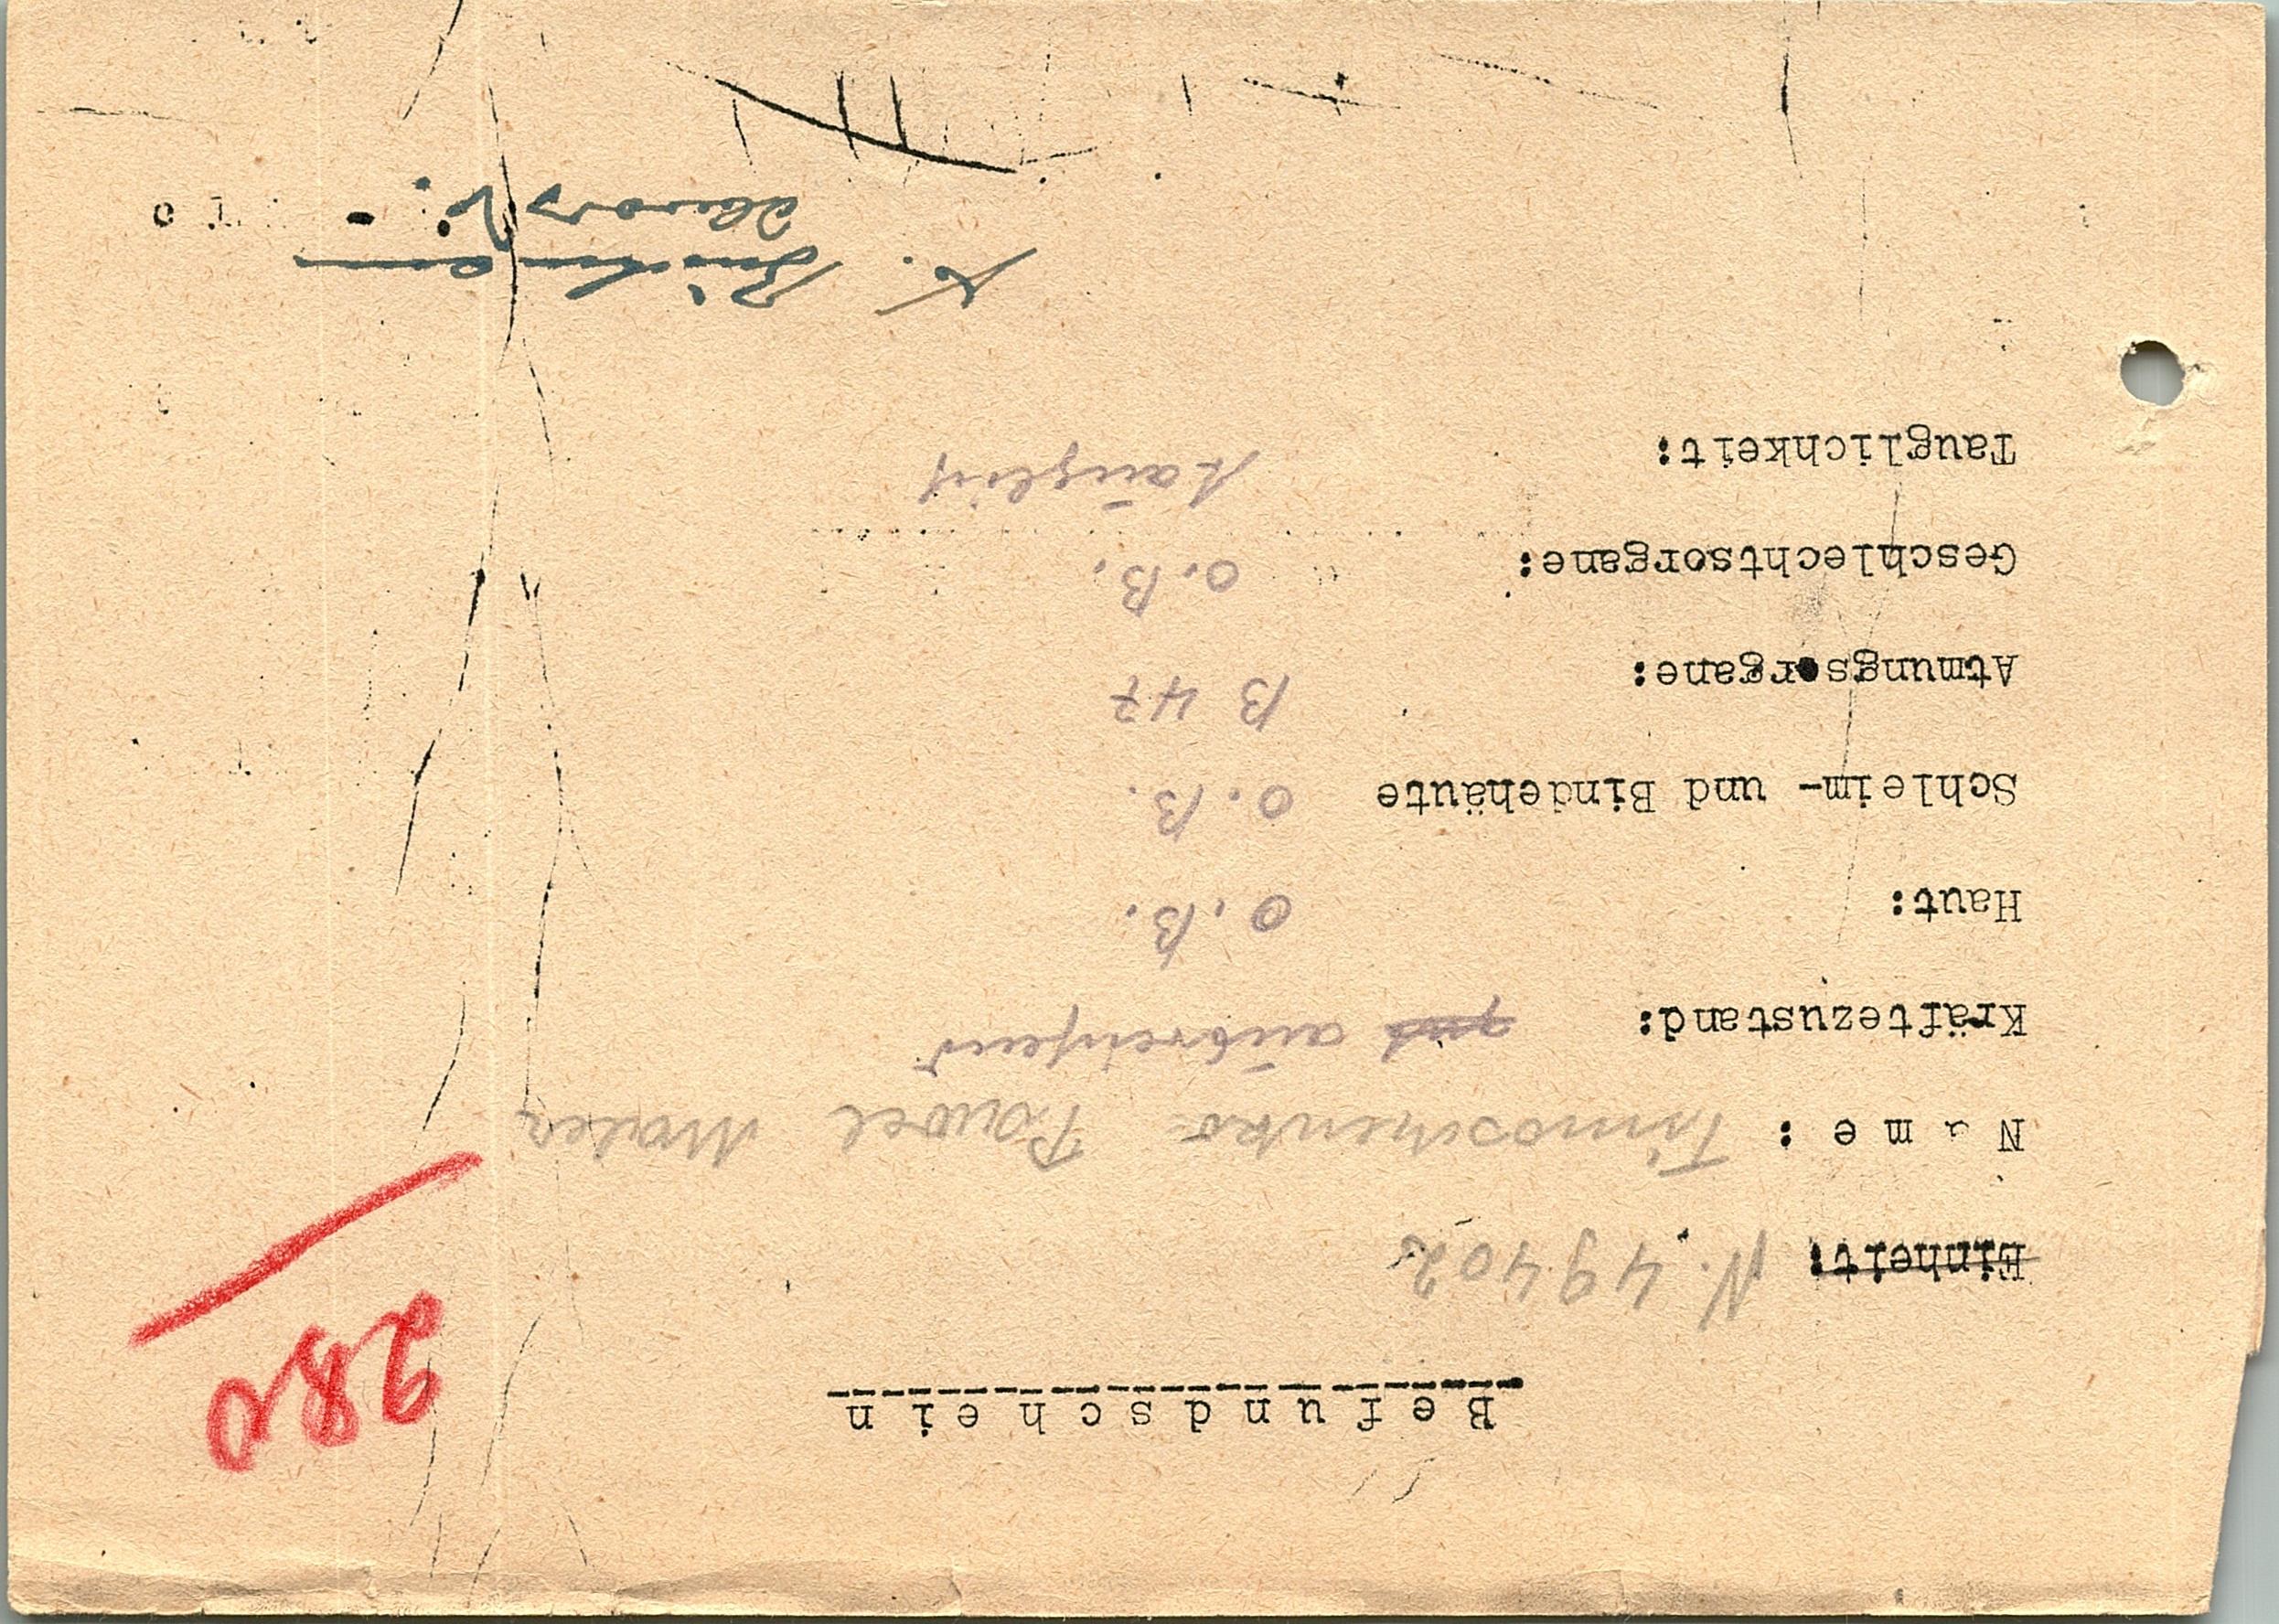 Befundschein
280
Einheit: N. 49402
Name: Timoschenko Pawel Maler
Kräftezustand: gut ausreichend
Haut: o.B.
Schleim- und Bindehäute o.B.
Atmungsorgane: B 47
Geschlechtsorgane: o.B.
Tauglichkeit: tauglich